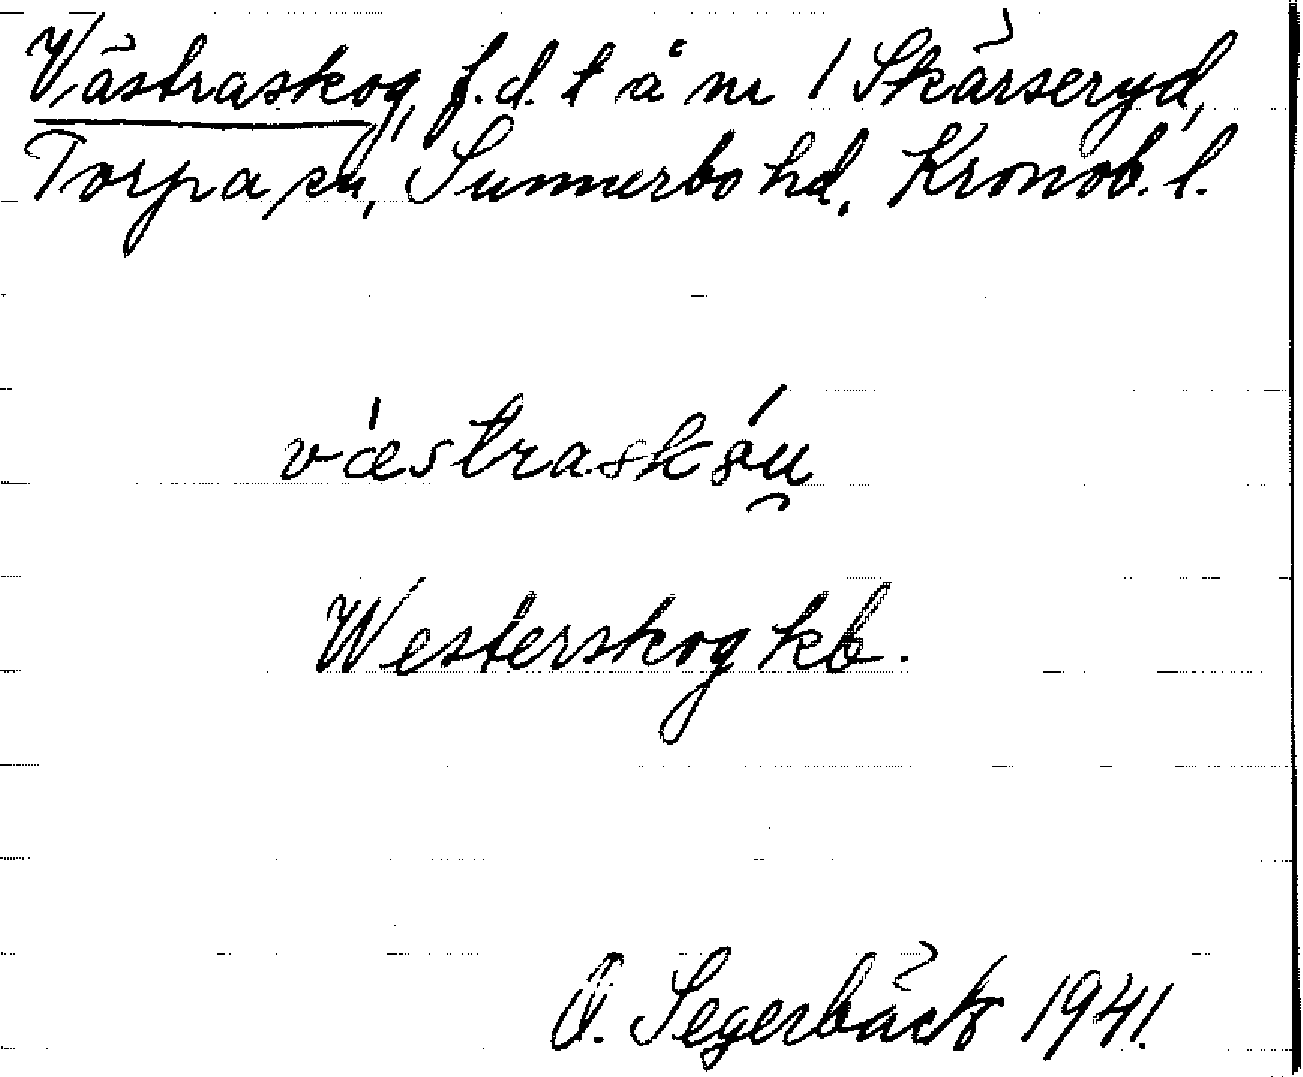 Västraskog, f.d. t å nr 1 Skärseryd,
Torpa sn, Sunnerbo hd, Kronob. l.
væ̍straskǿu̯
Westerskog kb.
O. Segerbäck 1941.